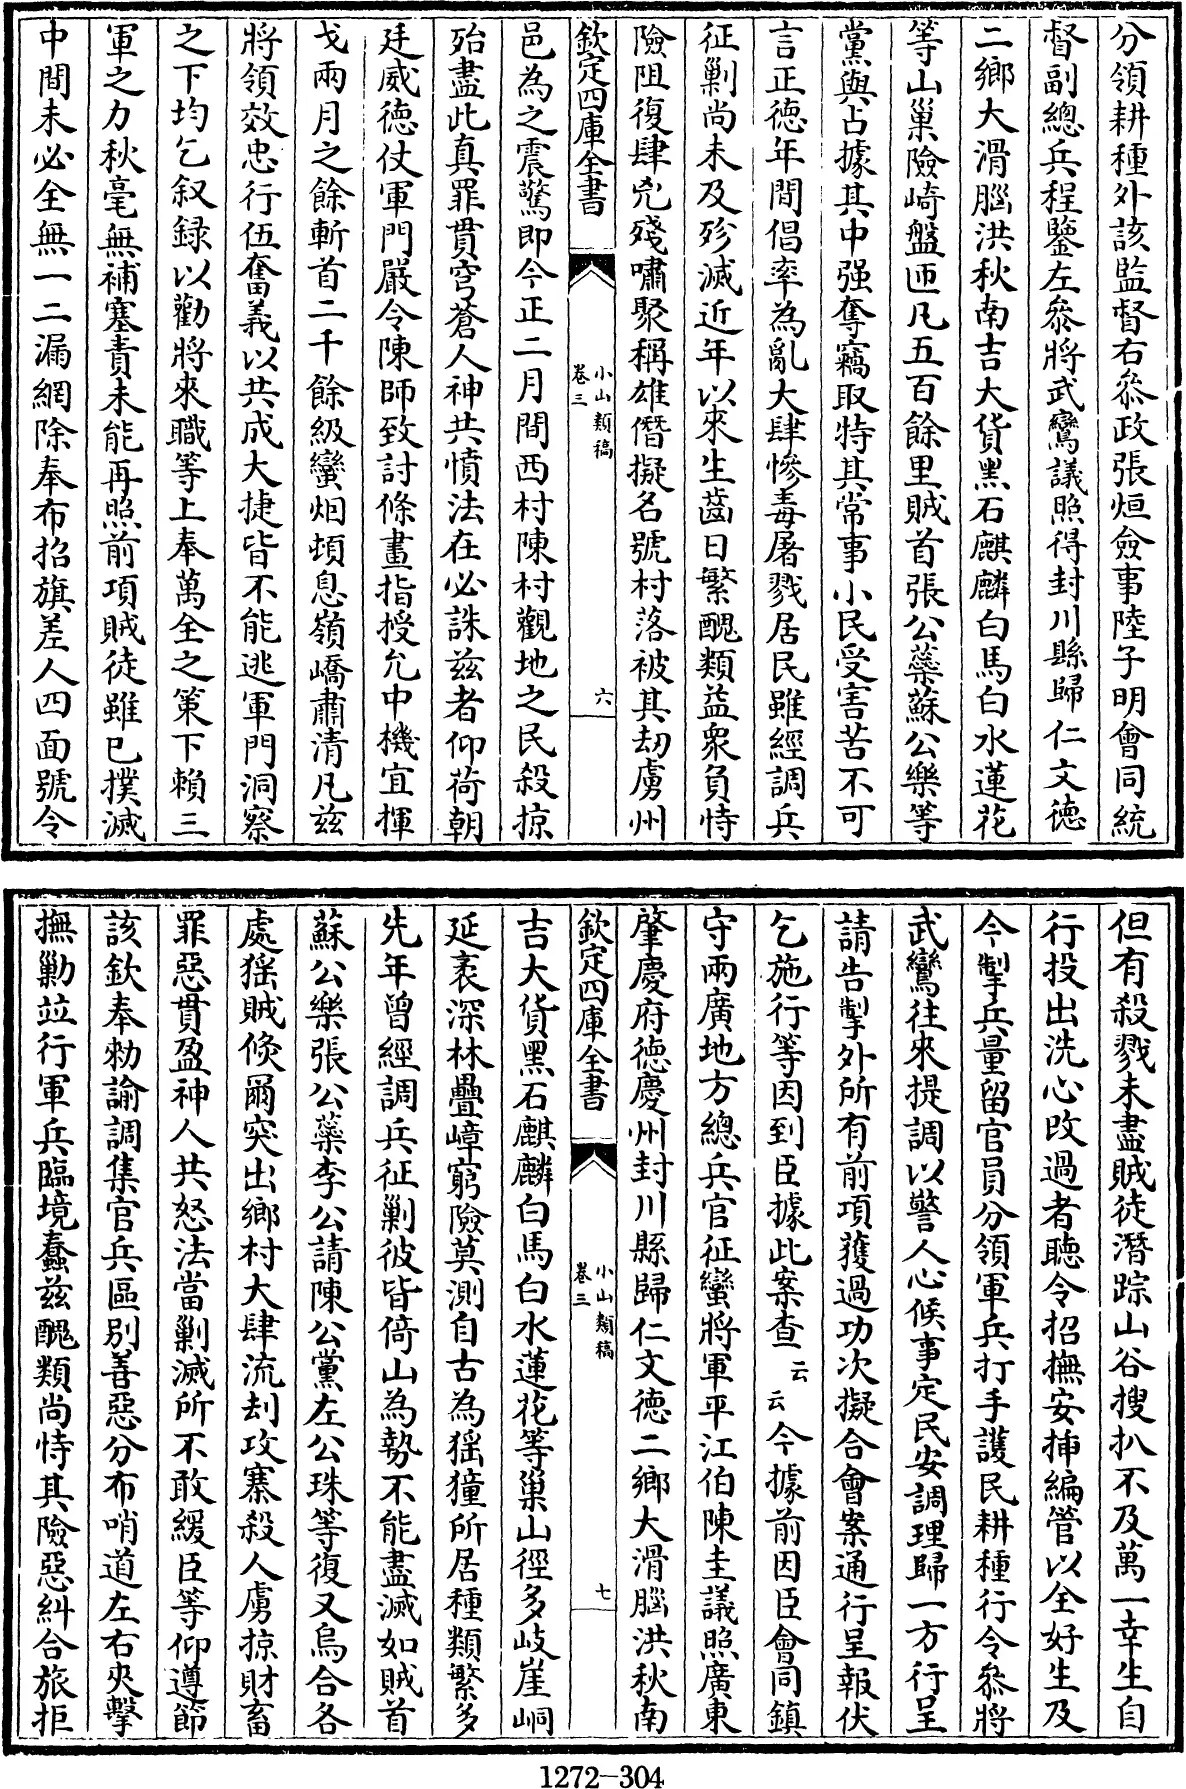 分領耕種外該監督右叅政張烜僉事陸子明會同統
督副總兵程鑒左叅將武鸞議照得封川縣歸仁文德
二鄉大滑腦洪秋南吉大貨黑石麒麟白馬白水蓮花
等山巢險崎盤迊凡五百餘里賊首張公蘂蘇公樂等
黨與占據其中强奪竊取特其常事小民受害苦不可
言正德年間倡率為亂大肆慘毒屠戮居民雖經調兵
征剿尚未及殄滅近年以來生齒日繁醜類益衆負恃
險阻復肆兇殘嘯聚稱雄僭擬名號村落被其劫虜州
欽定四庫全書
小山類稿
卷三
六
邑為之震驚即今正二月間西村陳村觀地之民殺掠
殆盡此真罪貫穹蒼人神共憤法在必誅兹者仰荷朝
廷威德仗軍門嚴令陳師致討條畫指授允中機宜揮
戈兩月之餘斬首二千餘級蠻烟頓息嶺嶠肅清凡兹
將領效忠行伍奮義以共成大捷皆不能逃軍門洞察
之下均乞叙録以勸將來職等上奉萬全之策下賴三
軍之力秋毫無補塞責未能再照前項賊徒雖已撲滅
中間未必全無一二漏網除奉布招旗差人四面號令
但有殺戮未盡賊徒潛踪山谷搜扒不及萬一幸生自
行投出洗心改過者聽令招撫安揷編管以全好生及
今掣兵量留官員分領軍兵打手護民耕種行令叅將
武鸞往來提調以警人心候事定民安調理歸一方行呈
請告掣外所有前項獲過功次擬合會案通行呈報伏
乞施行等因到臣據此案查云云今據前因臣會同鎮
守兩廣地方總兵官征蠻將軍平江伯陳圭議照廣東
肇慶府德慶州封川縣歸仁文德二鄉大滑腦洪秋南
欽定四庫全書
小山類稿
卷三
七
吉大貨黑石麒麟白馬白水蓮花等巢山徑多岐崖峒
延袤深林疊嶂窮險莫測自古為猺獞所居種類繁多
先年曾經調兵征剿彼皆倚山為勢不能盡滅如賊首
蘇公樂張公蘂李公請陳公黨左公珠等復又烏合各
處猺賊倐爾突出鄉村大肆流刦攻寨殺人虜掠財畜
罪惡貫盈神人共怒法當剿滅所不敢緩臣等仰遵節
該欽奉勅諭調集官兵區别善惡分布哨道左右夾擊
撫勦竝行軍兵臨境蠢兹醜類尚恃其險惡糾合旅拒
1272-304